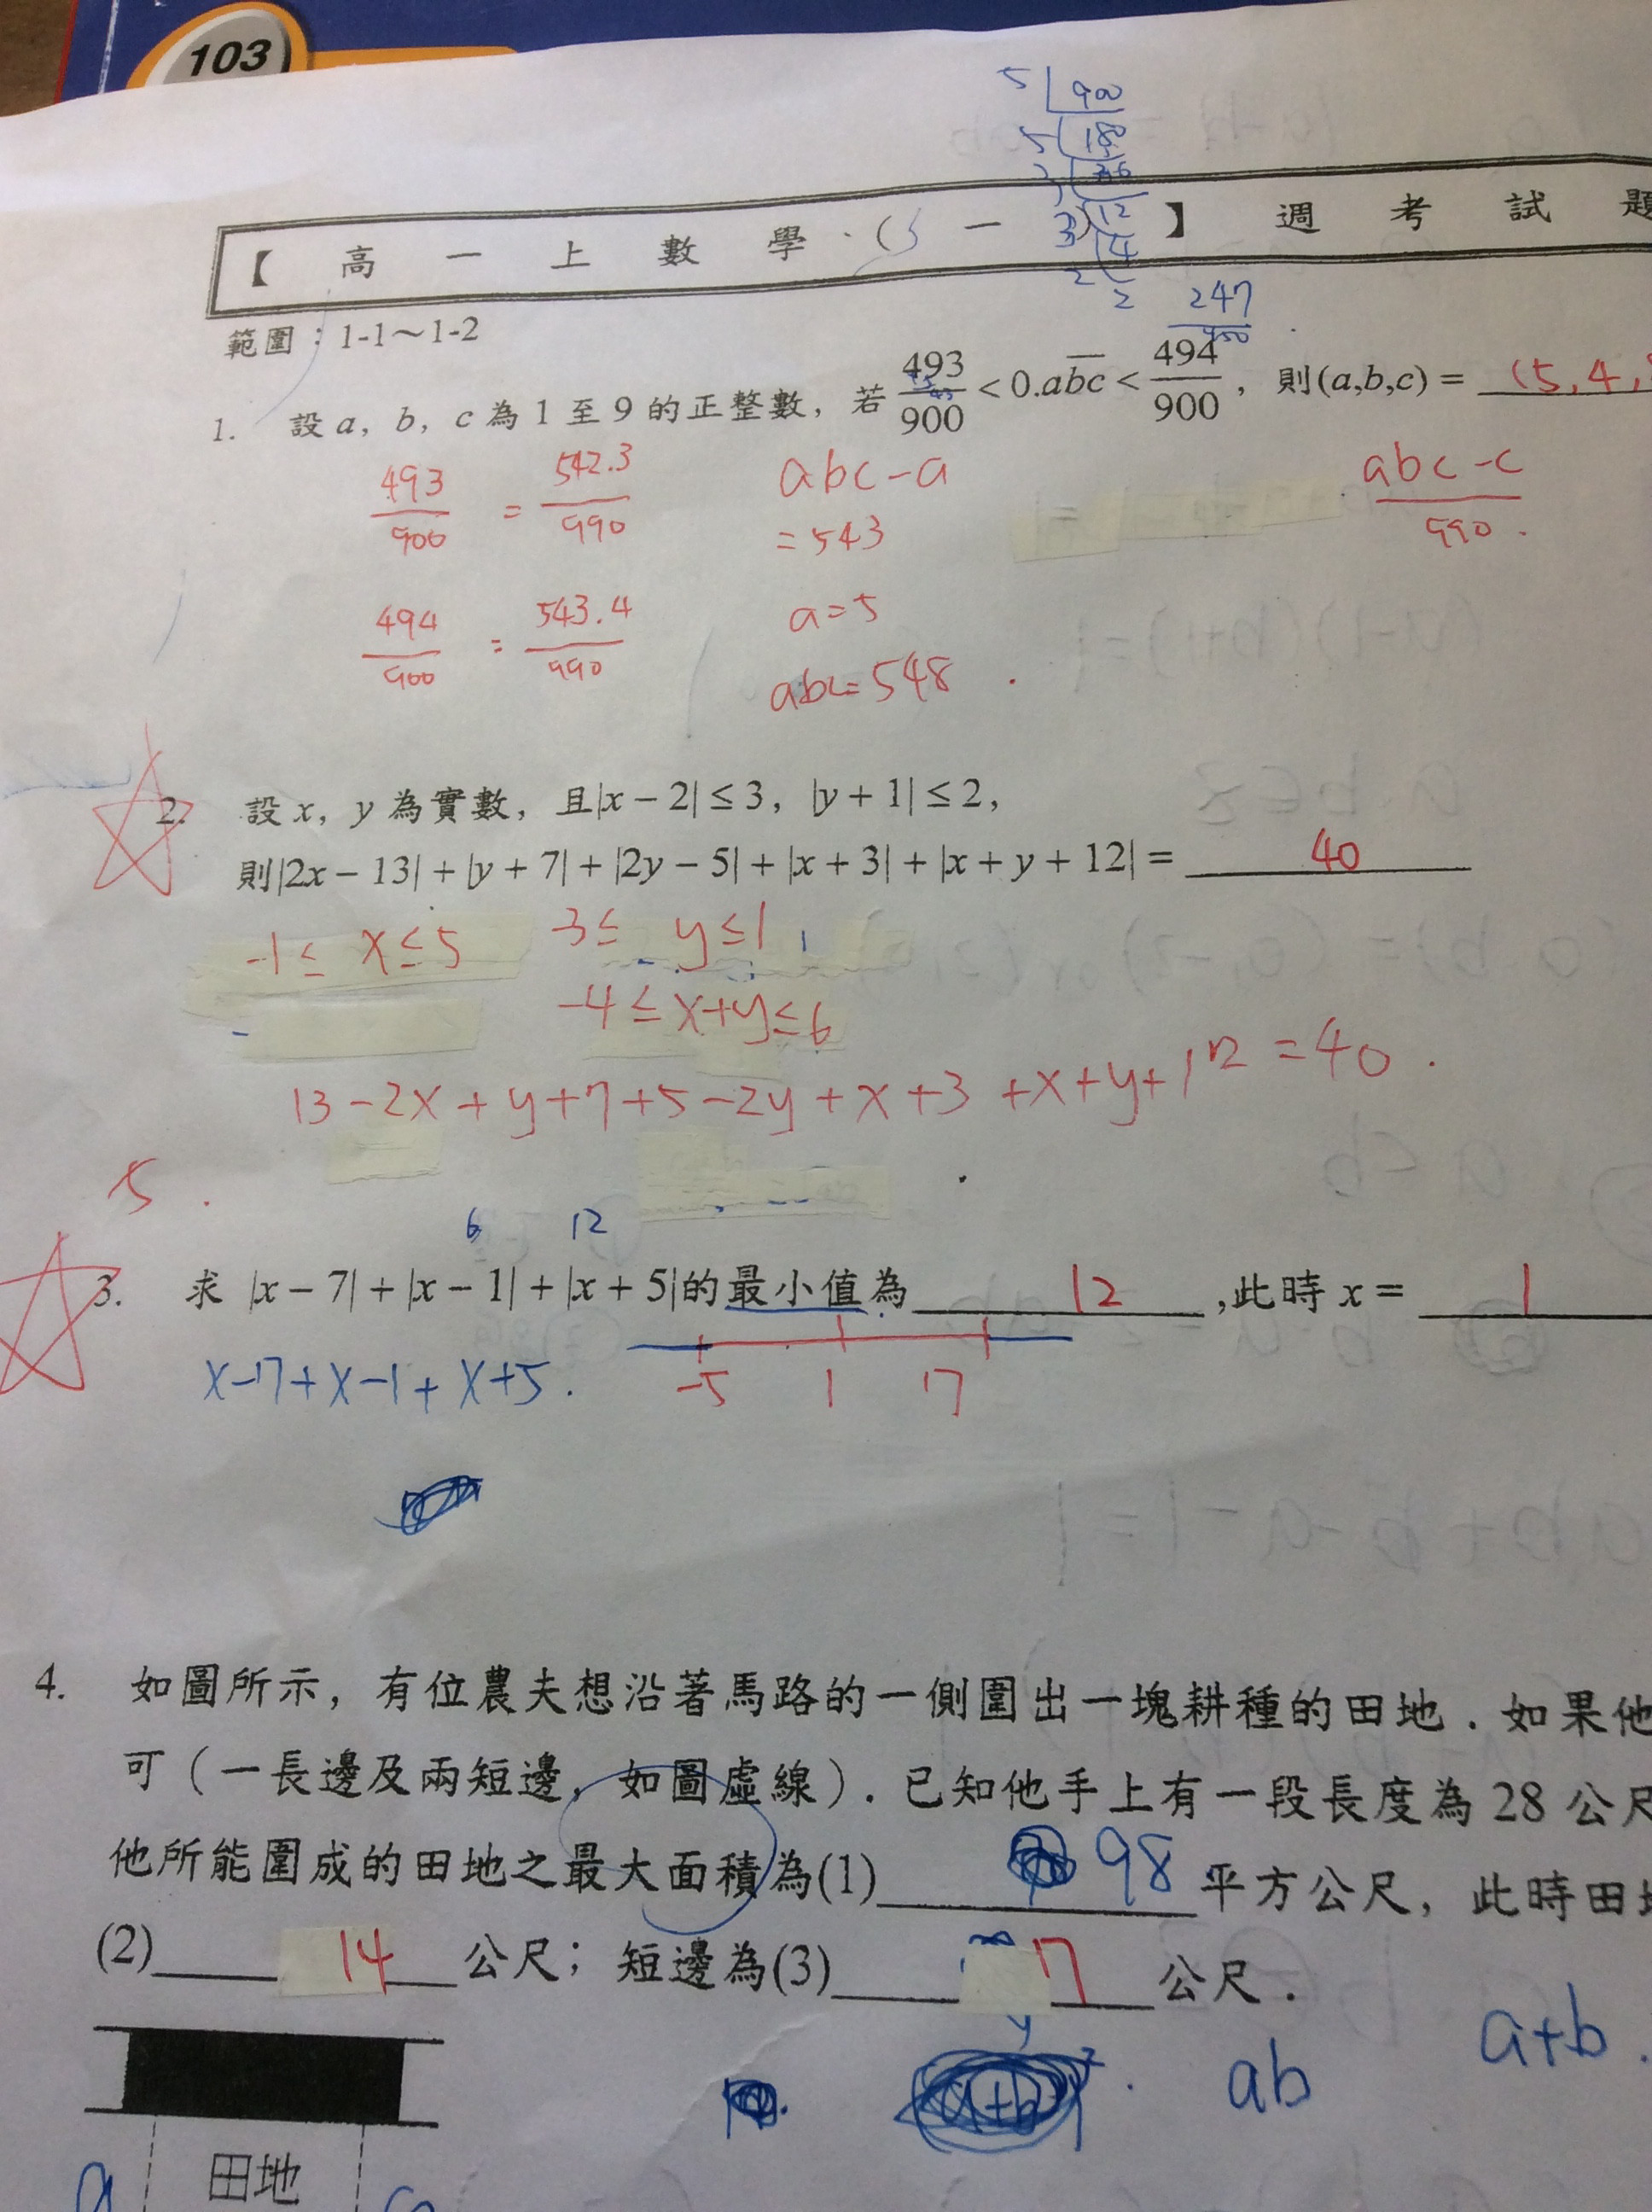 103
5 900
5 180
36
3 12
2 4
2
【 高 一 上 數 學 ( 一 】 週 考 試 題
範圍：1-1～1-2
247
1. 設 a，b，c 為 1 至 9 的正整數，若 493/900 < 0.a\overline{bc} < 494/900，則(a,b,c) = (5,4,
493/900 = 542.3/990 abc-a abc-c/990.
=543
494/900 = 543.4/990 a=5
abc=548.
2. 設 x，y 為實數，且|x − 2| ≤ 3，|y + 1| ≤ 2，
則|2x − 13| + |y + 7| + |2y − 5| + |x + 3| + |x + y + 12| = 40
-1≤ x≤5 -3≤ y≤1
-4≤x+y≤6
13-2x+y+7+5-2y+x+3+x+y+12=40.
5.
6 12
3. 求 |x − 7| + |x − 1| + |x + 5|的最小值為 12 ,此時 x = 1
x-7+x-1+x+5. -5 1 7
4. 如圖所示，有位農夫想沿著馬路的一側圍出一塊耕種的田地．如果他
可（一長邊及兩短邊，如圖虛線）．已知他手上有一段長度為 28 公尺
他所能圍成的田地之最大面積為(1) 98 平方公尺，此時田地
(2) 14 公尺；短邊為(3) 7 公尺．
y ab a+b.
田地
a